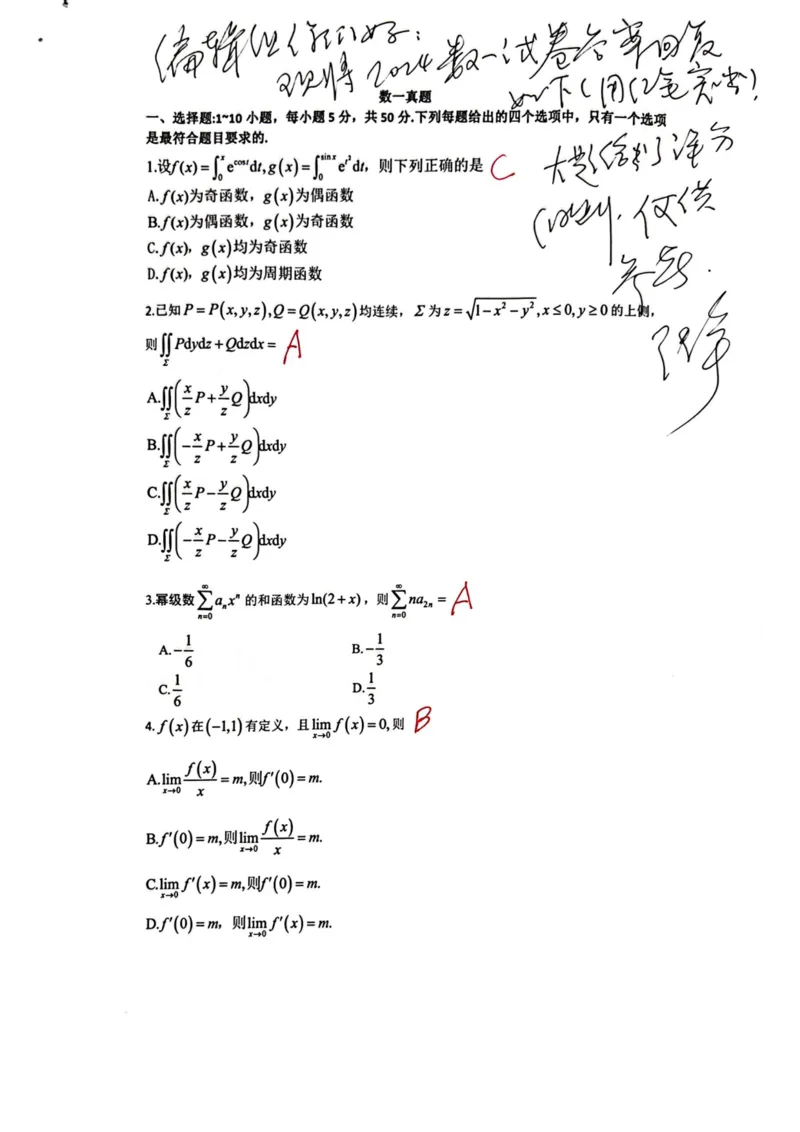 编辑组你们好：
现将2024数一试卷答案回复
如下（用红笔突出）
数一真题
一、选择题:1~10 小题，每小题 5 分，共 50 分.下列每题给出的四个选项中，只有一个选项
是最符合题目要求的.
大题给了评分
仅供
参考.
1.设f(x)=∫₀ˣ e^{cos t}dt, g(x)=∫₀^{sin x} e^{t²}dt，则下列正确的是 C
A.f(x)为奇函数，g(x)为偶函数
B.f(x)为偶函数，g(x)为奇函数
C.f(x)，g(x)均为奇函数
D.f(x)，g(x)均为周期函数
2.已知P=P(x,y,z),Q=Q(x,y,z)均连续，Σ为z=√(1−x²−y²),x≤0,y≥0的上侧,
则∬_Σ Pdydz+Qdzdx= A
A.∬_Σ(x/z P+y/z Q)dxdy
B.∬_Σ(−x/z P+y/z Q)dxdy
C.∬_Σ(x/z P−y/z Q)dxdy
D.∬_Σ(−x/z P−y/z Q)dxdy
3.幂级数∑_{n=0}^{∞} aₙxⁿ的和函数为ln(2+x)，则∑_{n=0}^{∞} na₂ₙ= A
A.−1/6 B.−1/3
C.1/6 D.1/3
4.f(x)在(−1,1)有定义，且lim_{x→0} f(x)=0,则 B
A.lim_{x→0} f(x)/x=m,则f′(0)=m.
B.f′(0)=m,则lim_{x→0} f(x)/x=m.
C.lim_{x→0} f′(x)=m,则f′(0)=m.
D.f′(0)=m，则lim_{x→0} f′(x)=m.